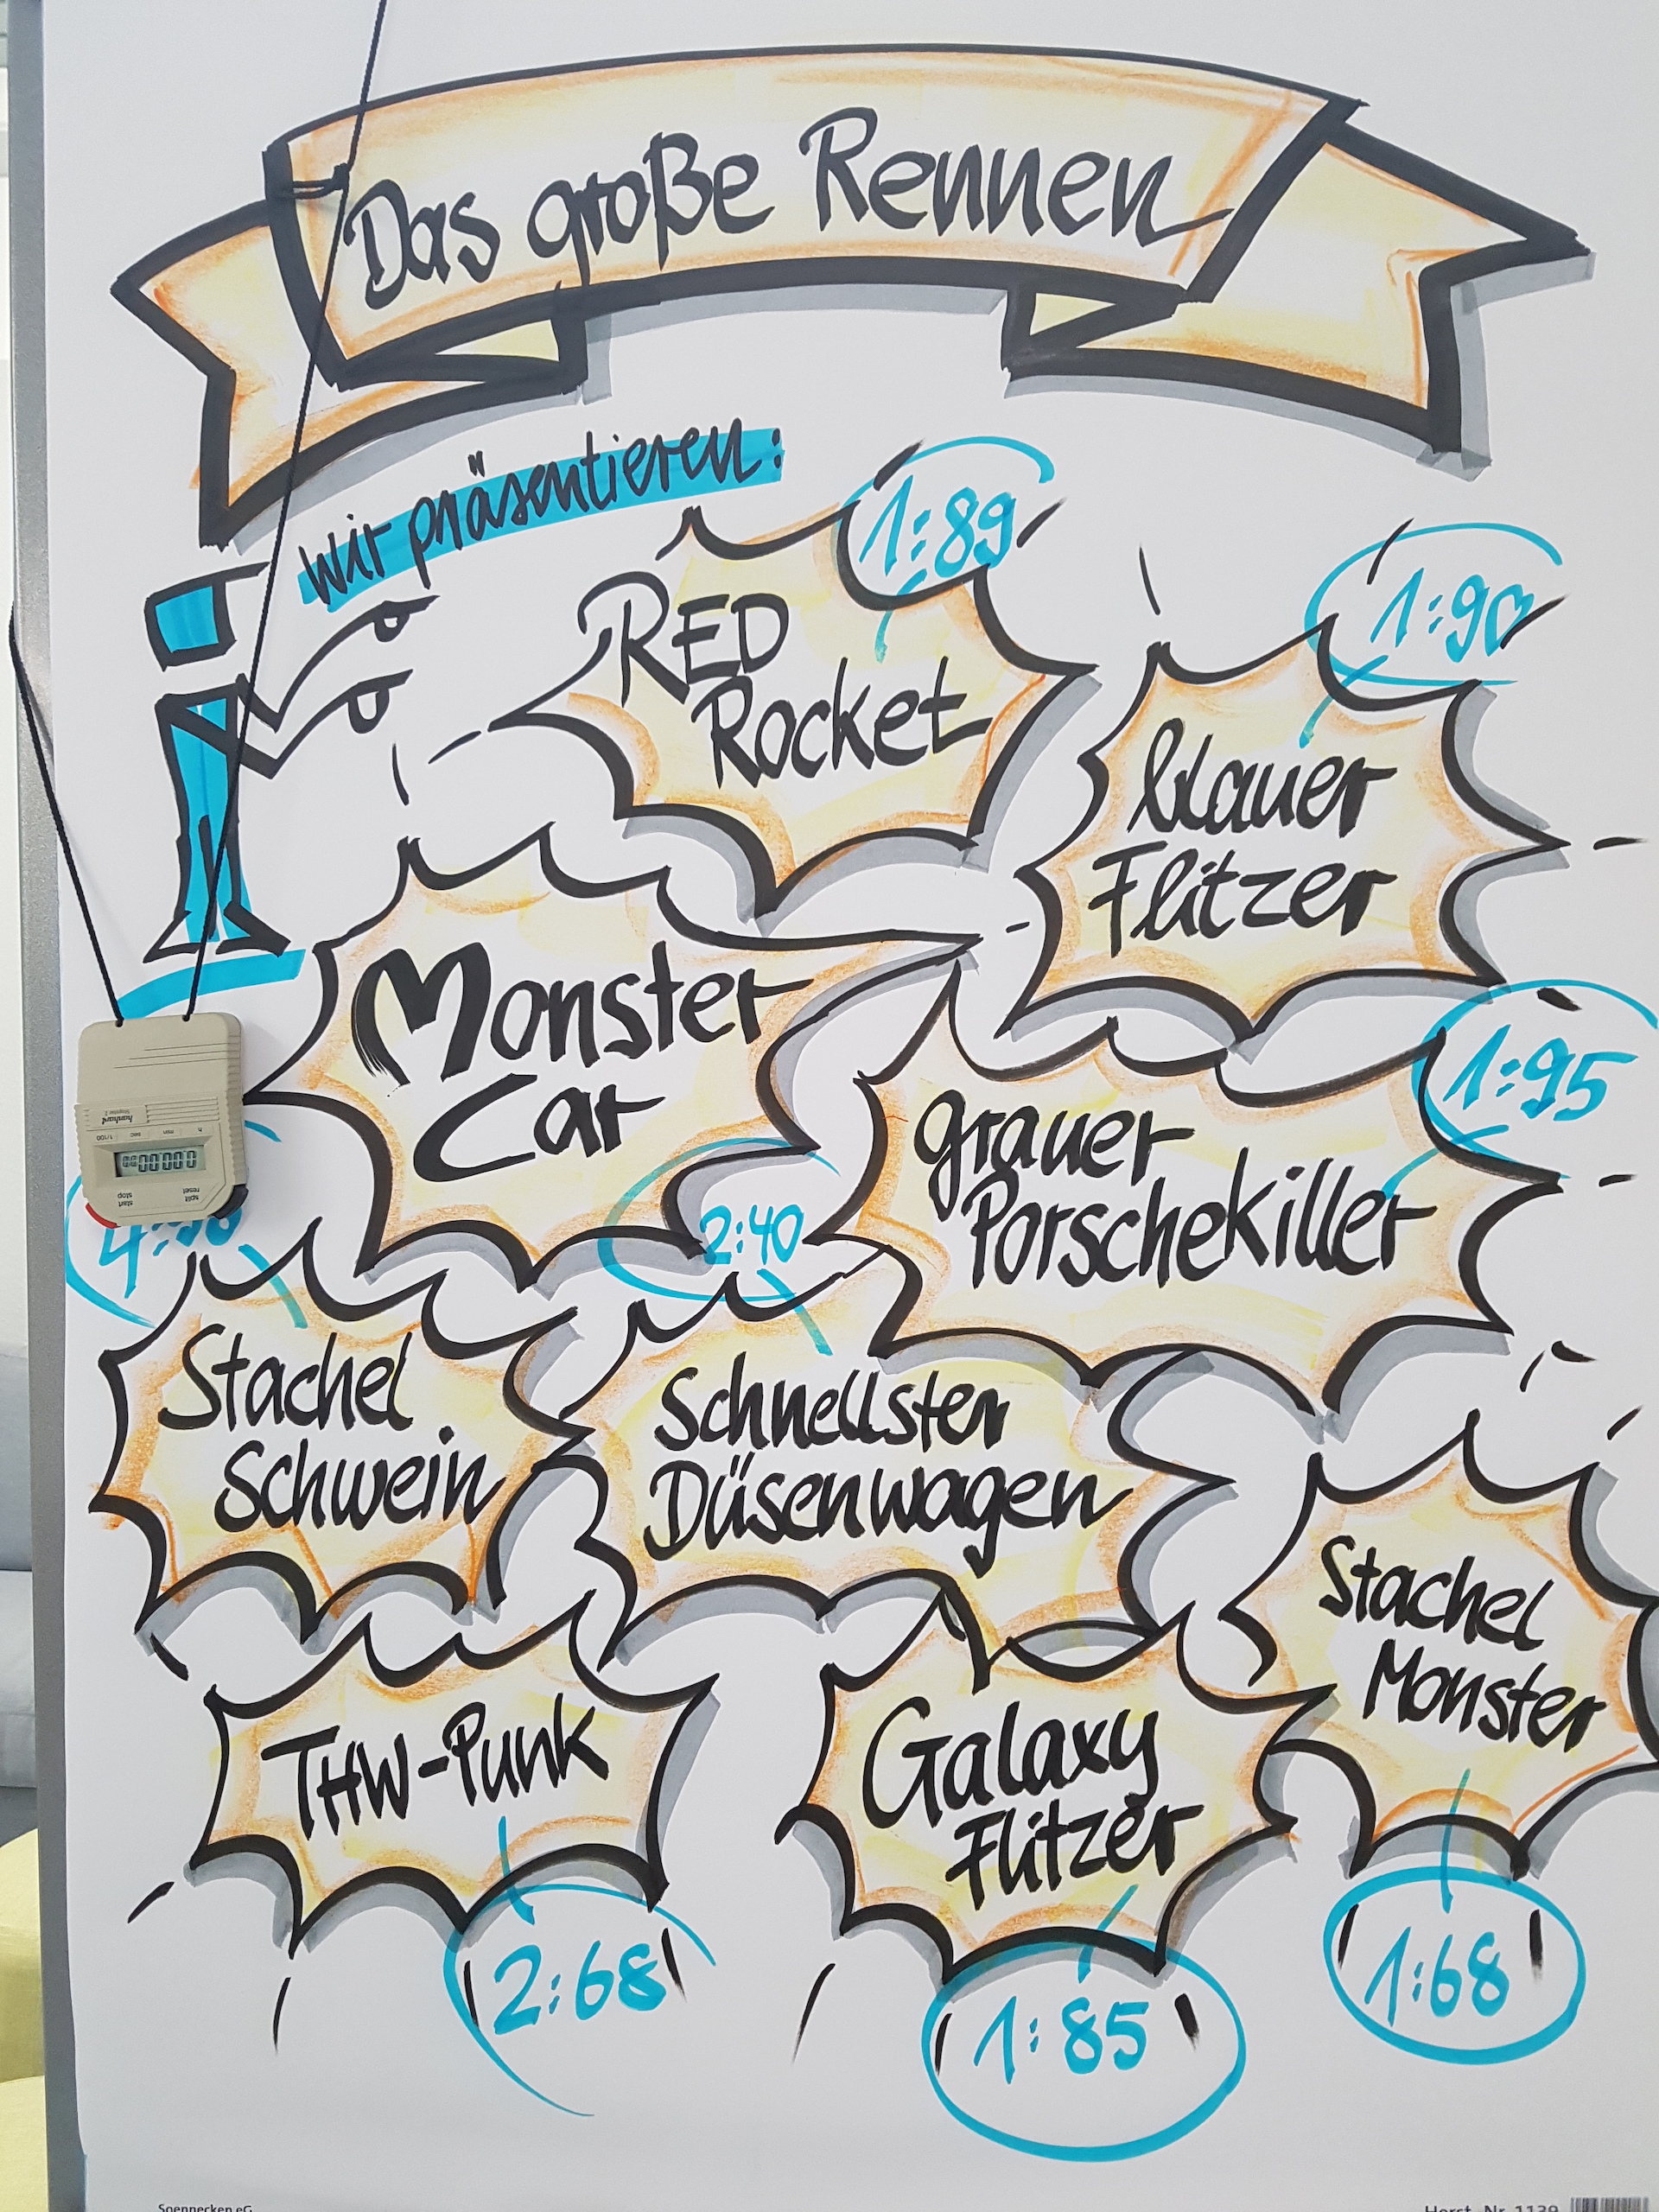 Das große Rennen
wir präsentieren:
1:89
RED
Rocket
1:90
blauer
Flitzer
Monster
Car
1:95
grauer
Porschekiller
hanhart
Stopstar 2
h min sec 1/100
split reset
start stop
2:40
Stachel
Schwein
Schnellster
Düsenwagen
Stachel
Monster
1:68
THW-Punk
2:68
Galaxy
Flitzer
1:85
Soennecken eG